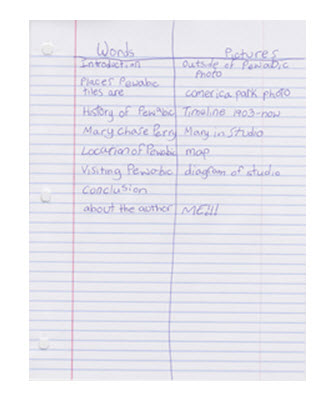 Words Pictures
Introduction outside of Pewabic
photo
Places Pewabic
tiles are comerica park photo
History of Pewabic Timeline 1903-now
Mary Chase Perry Mary in Studio
Location of Pewabic map
Visiting Pewabic diagram of studio
conclusion
about the author ME!!!